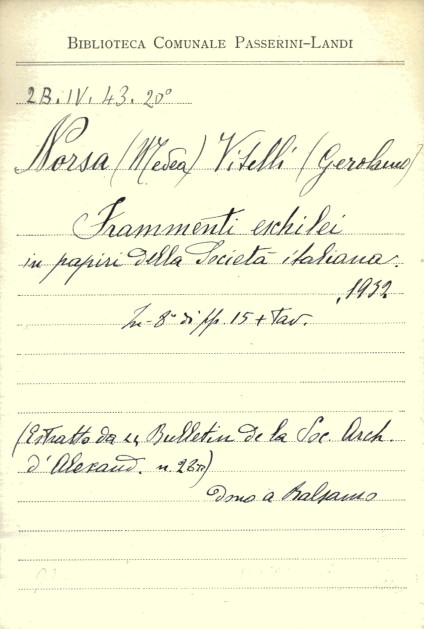 BIBLIOTECA COMUNALE PASSERINI-LANDI
2B. IV. 43. 20°
Norsa (Medea) Vitelli (Gerolamo)
Frammenti eschilei
in papiri della Società italiana.
1932
In-8° di pp. 15 + Tav.
(Estratto da Bulletin de la Soc. Arch.
d'Alexand. n.
Dono a Balsamo